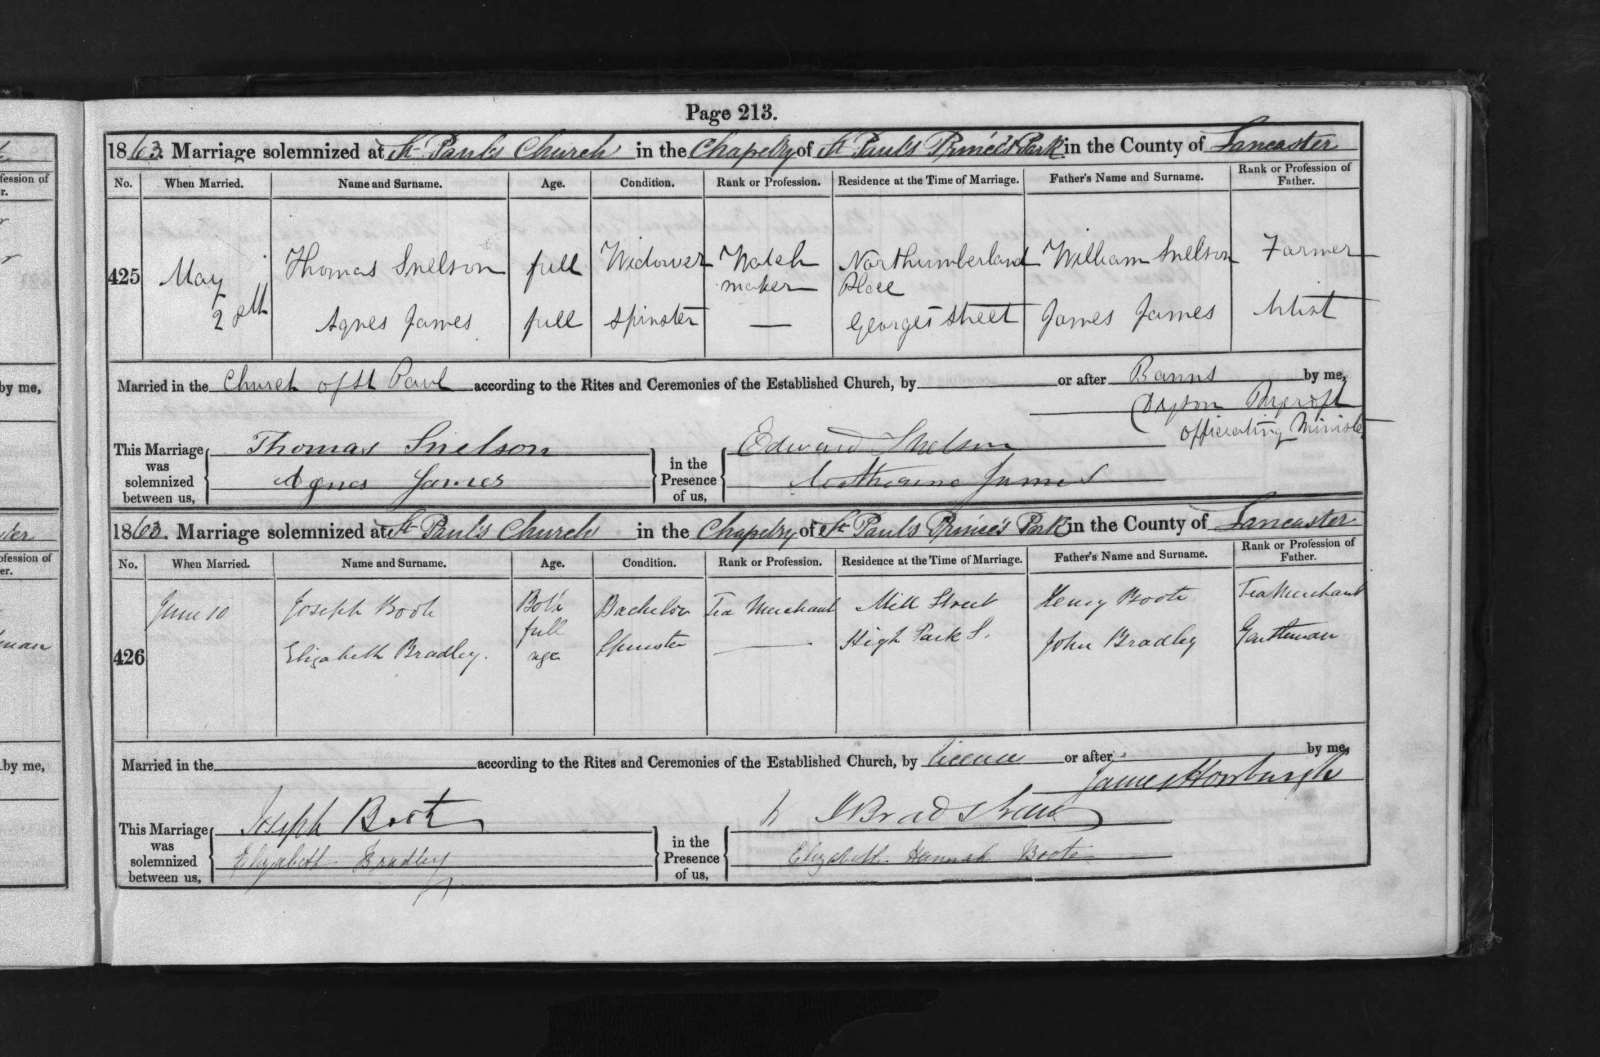 Page 213.
1863. Marriage solemnized at St Paul's Church in the Chapelry of St Paul's Prince's Park in the County of Lancaster
No. When Married. Name and Surname. Age. Condition. Rank or Profession. Residence at the Time of Marriage. Father's Name and Surname. Rank or Profession of Father.
425 May 28th Thomas Snelson full Widower Watch maker Northumberland Place William Snelson Farmer
Agnes James full Spinster — Georges Street James James Artist
Married in the Church of St Paul according to the Rites and Ceremonies of the Established Church, by or after Banns by me,
Officiating Minister
This Marriage was solemnized between us, Thomas Snelson in the Presence of us, Edward Snelson
Agnes James Catherine James
1863. Marriage solemnized at St Paul's Church in the Chapelry of St Paul's Prince's Park in the County of Lancaster
No. When Married. Name and Surname. Age. Condition. Rank or Profession. Residence at the Time of Marriage. Father's Name and Surname. Rank or Profession of Father.
426 June 10 Joseph Boote Both full age Bachelor Tea Merchant Mill Street Henry Boote Tea Merchant
Elizabeth Bradley. Spinster — High Park S. John Bradley Gentleman
Married in the according to the Rites and Ceremonies of the Established Church, by licence or after by me,
James Horsburgh
This Marriage was solemnized between us, Joseph Boote in the Presence of us,
Elizabeth Bradley Elizabeth Hannah Boote
fession of
r.
by me,
fession of
er.
by me,